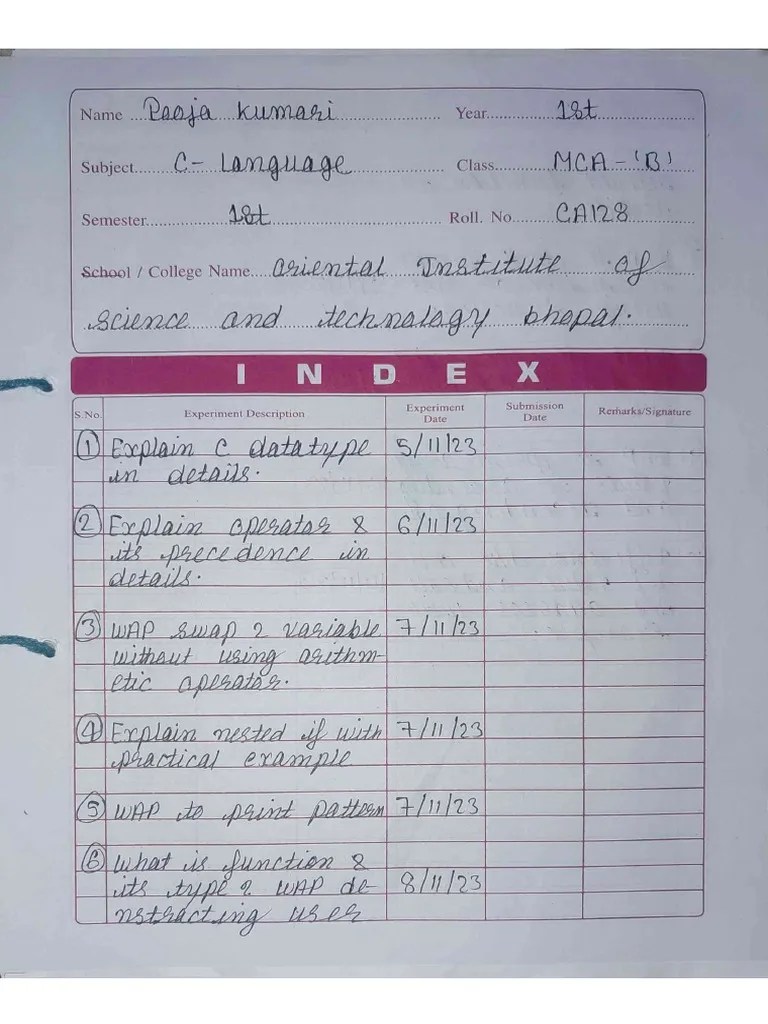 Name Pooja Kumari Year 1st
Subject C- Language Class MCA-'B'
Semester 1st Roll. No. CA128
School / College Name Oriental Institute of
science and technology bhopal.
INDEX
S.No. Experiment Description Experiment Date Submission Date Remarks/Signature
1 Explain C datatype 5/11/23
in details.
2 Explain operator & 6/11/23
its precedence in
details.
3 WAP swap 2 variable 7/11/23
without using arithm-
etic operator.
4 Explain nested if with 7/11/23
practical example
5 WAP to print pattern 7/11/23
6 What is function &
its type? WAP de- 8/11/23
nstracting user